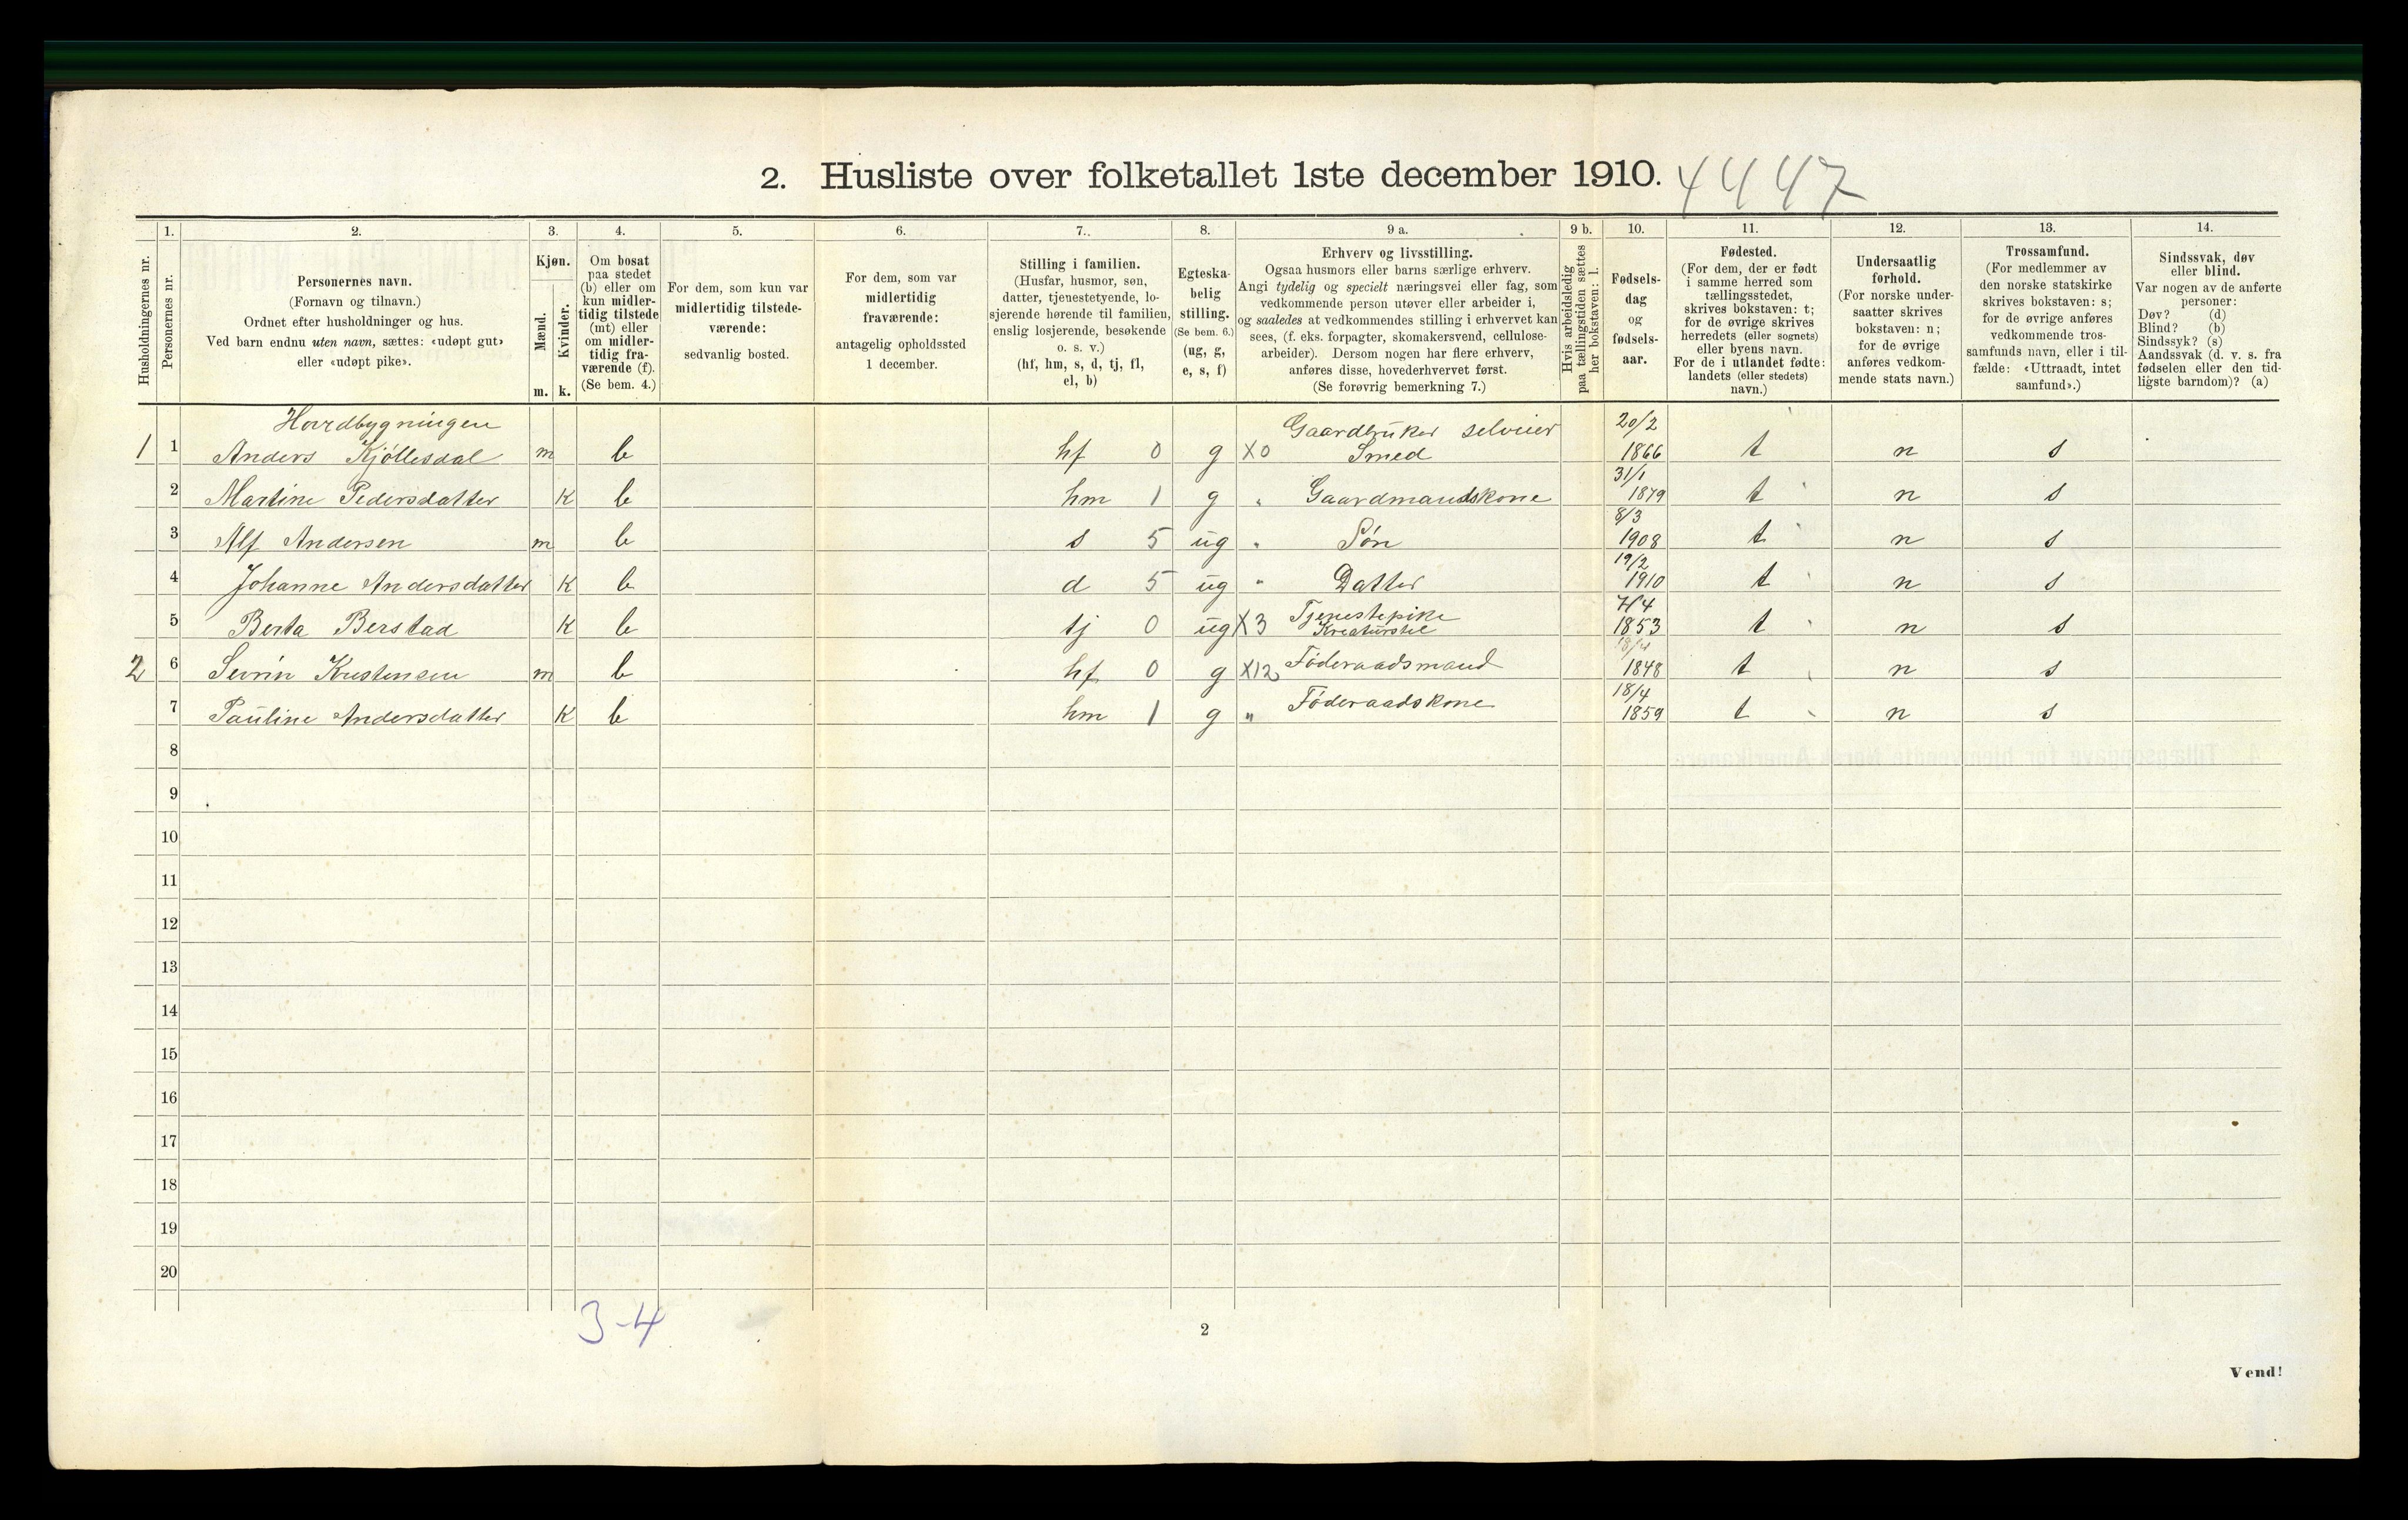 2. Husliste over folketallet 1ste december 1910. 4447
1. 2. 3. 4. 5. 6. 7. 8. 9 a. 9 b. 10. 11. 12. 13. 14.
Husholdningernes nr.
Personernes nr.
Personernes navn.
(Fornavn og tilnavn.)
Ordnet efter husholdninger og hus.
Ved barn endnu uten navn, sættes: «udøpt gut»
eller «udøpt pike».
Kjøn.
Mænd.
Kvinder.
m. k.
Om bosat
paa stedet
(b) eller om
kun midler-
tidig tilstede
(mt) eller
om midler-
tidig fra-
værende (f).
(Se bem. 4.)
For dem, som kun var
midlertidig tilstede-
værende:
sedvanlig bosted.
For dem, som var
midlertidig
fraværende:
antagelig opholdssted
1 december.
Stilling i familien.
(Husfar, husmor, søn,
datter, tjenestetyende, lo-
sjerende hørende til familien,
enslig losjerende, besøkende
o. s. v.)
(hf, hm, s, d, tj, fl,
el, b)
Egteska-
belig
stilling.
(Se bem. 6.)
(ug, g,
e, s, f)
Erhverv og livsstilling.
Ogsaa husmors eller barns særlige erhverv.
Angi tydelig og specielt næringsvei eller fag, som
vedkommende person utøver eller arbeider i,
og saaledes at vedkommendes stilling i erhvervet kan
sees, (f. eks. forpagter, skomakersvend, cellulose-
arbeider). Dersom nogen har flere erhverv,
anføres disse, hovederhvervet først.
(Se forøvrig bemerkning 7.)
Hvis arbeidsledig
paa tællingstiden sættes
her bokstaven: l.
Fødsels-
dag
og
fødsels-
aar.
Fødested.
(For dem, der er født
i samme herred som
tællingsstedet,
skrives bokstaven: t;
for de øvrige skrives
herredets (eller sognets)
eller byens navn.
For de i utlandet fødte:
landets (eller stedets)
navn.)
Undersaatlig
forhold.
(For norske under-
saatter skrives
bokstaven: n;
for de øvrige
anføres vedkom-
mende stats navn.)
Trossamfund.
(For medlemmer av
den norske statskirke
skrives bokstaven: s;
for de øvrige anføres
vedkommende tros-
samfunds navn, eller i til-
fælde: «Uttraadt, intet
samfund».)
Sindssvak, døv
eller blind.
Var nogen av de anførte
personer:
Døv? (d)
Blind? (b)
Sindssyk? (s)
Aandssvak (d. v. s. fra
fødselen eller den tid-
ligste barndom)? (a)
Hovdbygningen Gaardbruker selveier 20/2
1 1 Anders Kjöllesdal m b hf 0 g X0 Smed 1866 t n s
31/1
2 Martine Pedersdatter K b hm 1 g " Gaardmandskone 1879 t n s
8/3
3 Alf Andersen m b s 5 ug " Søn 1908 t n s
19/2
4 Johanne Andersdatter K b d 5 ug " Datter 1910 t n s
Tjenestepike 7/4
5 Berta Berstad K b tj 0 ug X3 Kreaturstel 1853 t n s
2 6 Sevrin Kristensen m b hf 0 g X12 Föderaadsmand 1848 t n s
18/4
7 Pauline Andersdatter K b hm 1 g " Föderaadskone 1859 t n s
8
9
10
11
12
13
14
15
16
17
18
19
20
3-4
2
Vend!